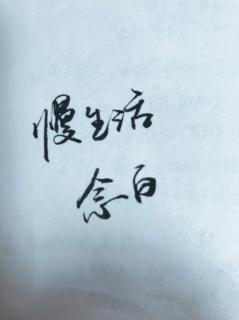 慢生活
念白